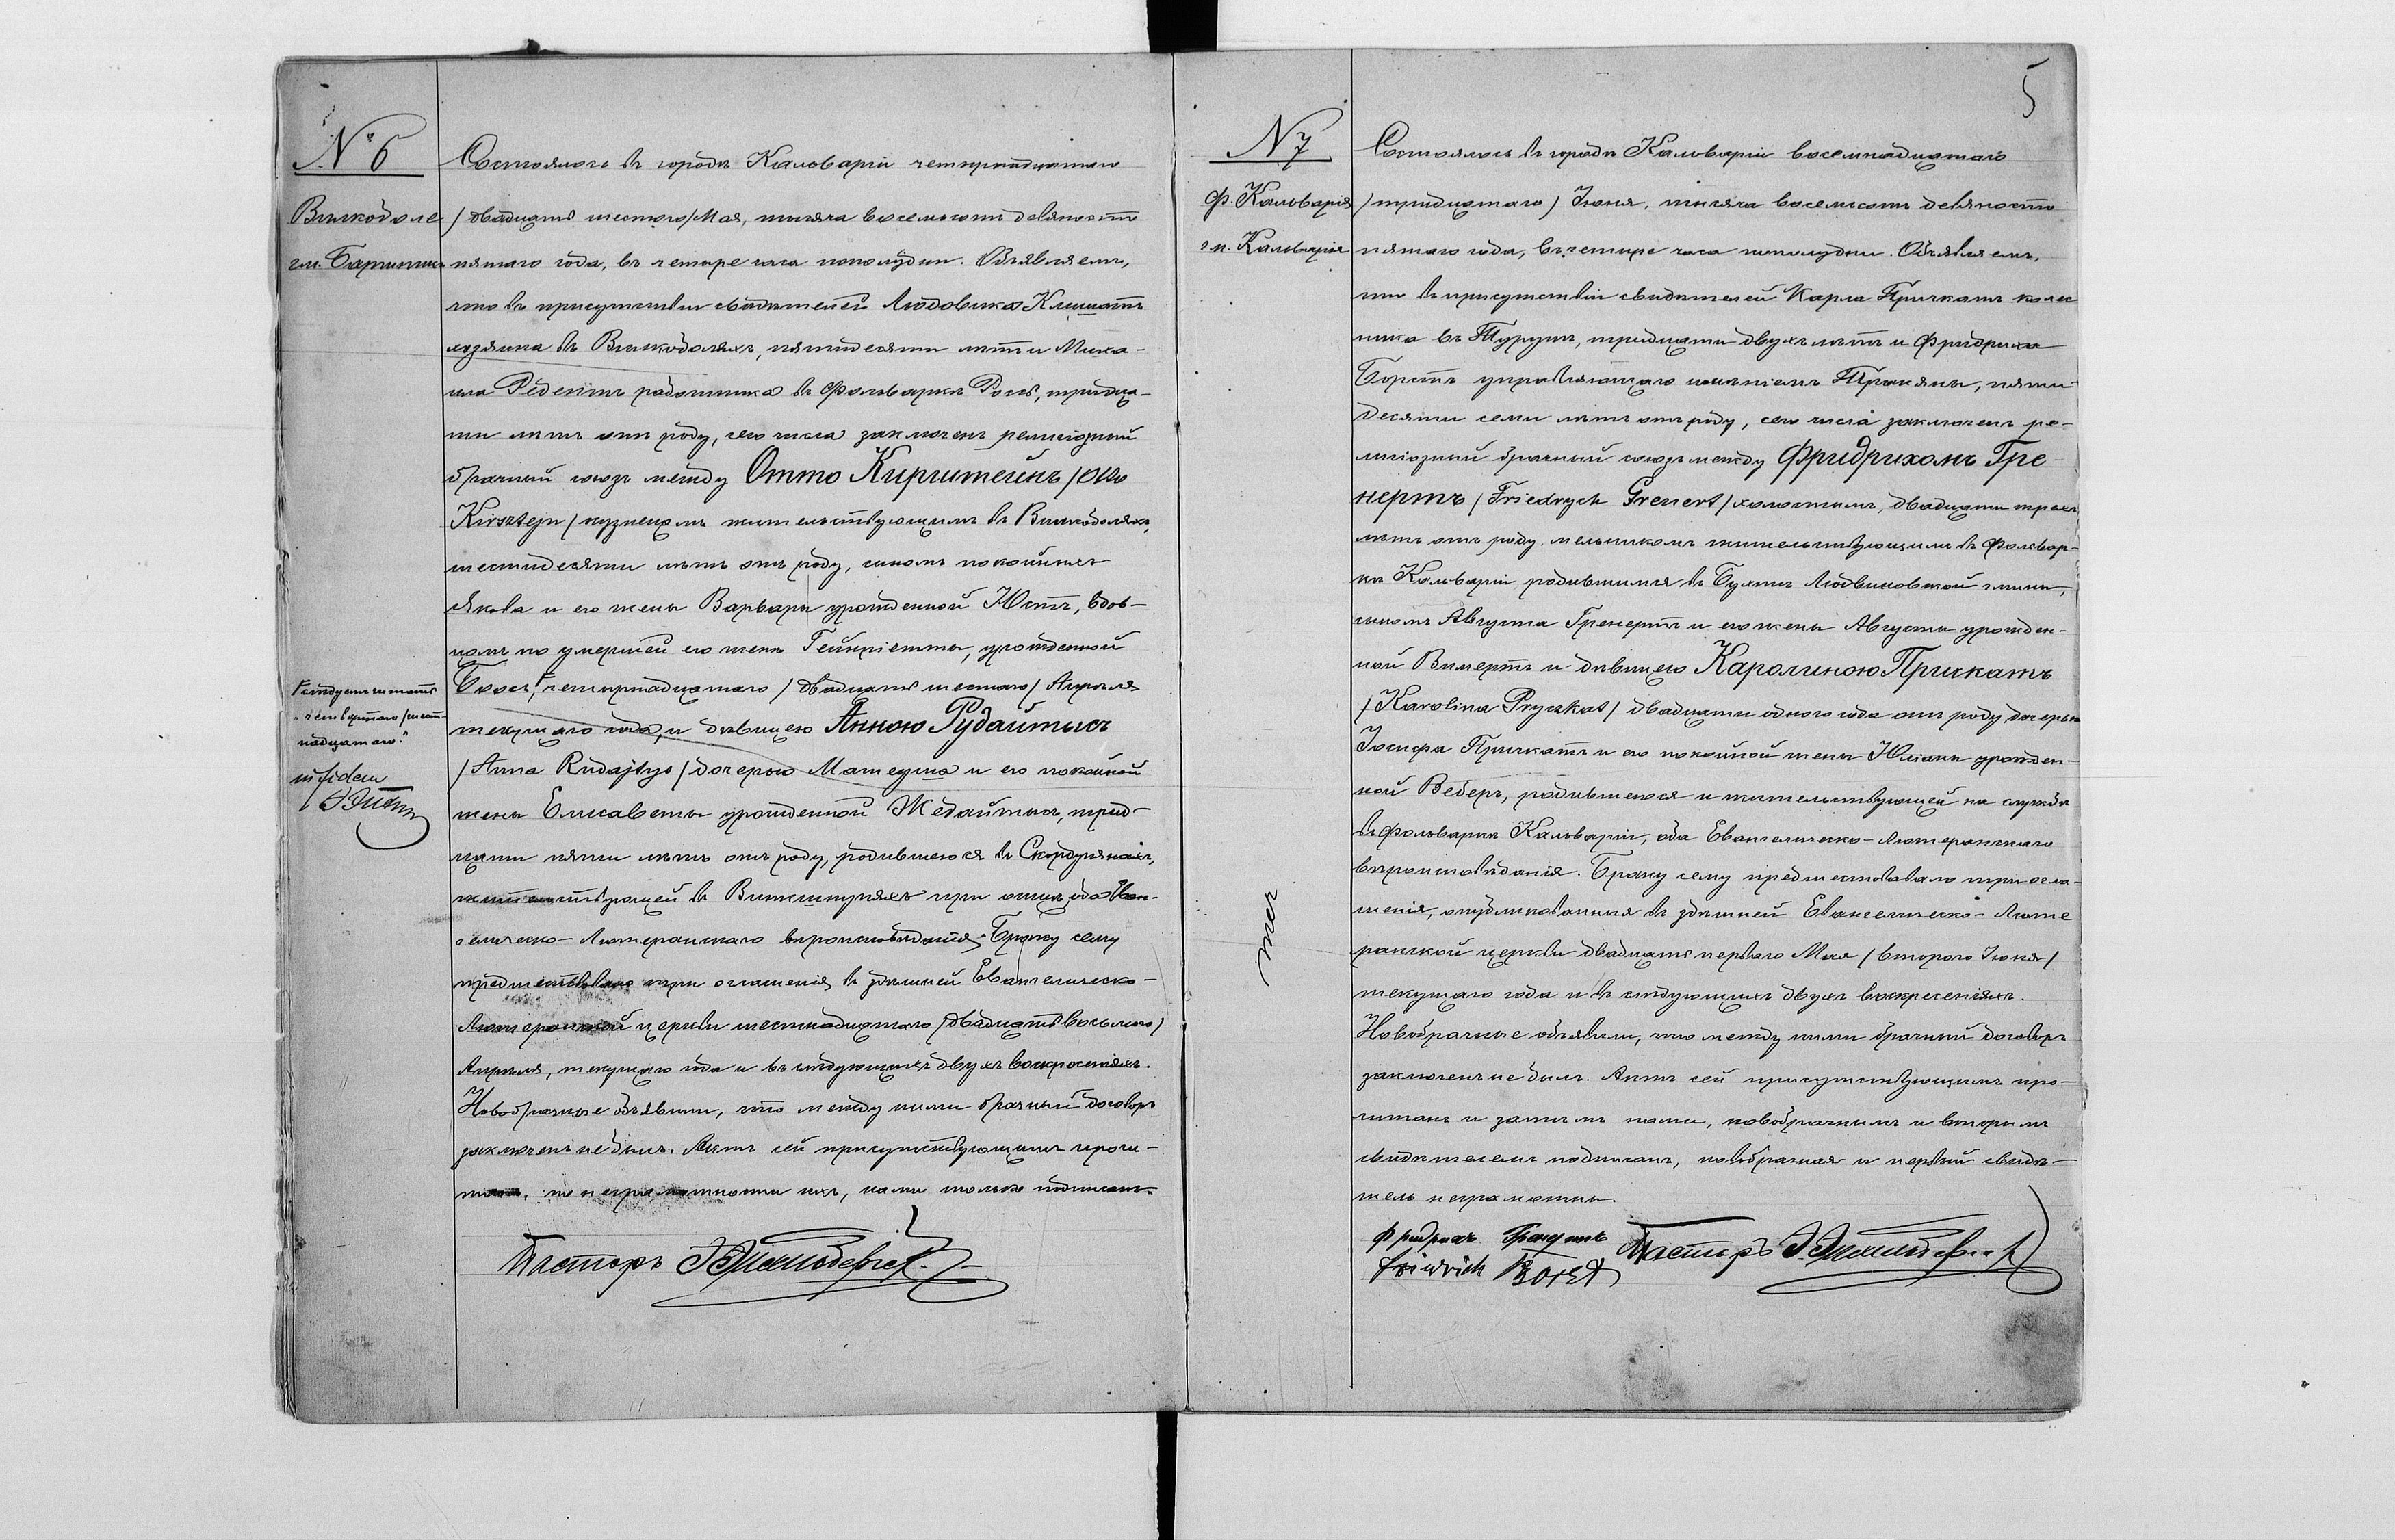 № 6
Состоялось въ городѣ Кальваріи четырнадцатаго
Вилкоболе
/двадцать шестого/ Мая, тысяча восемьсотъ девяносто
гм.
пятаго года, въ четыре часа пополудни. Объявляемъ,
что въ присутствіи свидѣтелей Людовика
хозяина въ пятидесяти лѣтъ и Миха-
ила работника въ фольваркѣ тридца-
ти лѣтъ отъ роду, сего числа заключенъ религіозный
брачный союзъ между Отто Кирштейнъ /Otto
Kirsztejn/ кузнецомъ жительствующимъ въ
шестидесяти лѣтъ отъ роду, сыномъ покойныхъ
Якова и его жены Варвары урожденной Юстъ, вдов-
цомъ по умершей его женѣ Гейнріетты, урожденной
четырнадцатаго /двадцать шестого/ Апрѣля
текущаго года, и дѣвицею Анною Рудайтысъ
/Anna Rudajtys/ дочерью Матеуша и его покойной
жены Елисаветы урожденной трид-
цати пяти лѣтъ отъ роду, родившеюся въ
жительствующей въ при отцѣ, оба Еван-
гелическо-Лютеранскаго вѣроисповѣданія. Браку сему
предшествовало три оглашенія въ здѣшней Евангелическо-
Лютеранской церкви шестнадцатаго /двадцать восьмого/
Апрѣля, текущаго года и въ слѣдующихъ двухъ воскресеніяхъ.
Новобрачные объявили, что между ними брачный договоръ
заключенъ не былъ. Актъ сей присутствующимъ прочи-
танъ, по неграмотности ихъ, нами только подписанъ.
Пасторъ
слѣдуетъ читать
„четвертаго /шест-
надцатаго."
in fidem
5
N 7
Состоялось въ городѣ Кальваріи восемнадцатаго
ф. Кальварія
/тридцатаго/ Іюня, тысяча восемьсотъ девяносто
гм. Кальварія
пятаго года, въ четыре часа пополудни. Объявляемъ,
что въ присутствіи свидѣтелей Карла Причкатъ колес
ника въ тридцати двухъ лѣтъ и Фридриха
Борстъ управляющаго имѣніемъ пяти-
десяти семи лѣтъ отъ роду, сего числа заключенъ ре-
лигіозный брачный союзъ между Фридрихомъ Гре-
нертъ /Friedrych Grenert/ холостымъ, двадцати трехъ
лѣтъ отъ роду мельникомъ жительствующимъ въ фольвар-
кѣ Кальваріи родившимся въ Людвиновской гмины,
сыномъ Августа Гренертъ и его жены Августы урожден-
ной Вимертъ и дѣвицею Каролиною Прижатъ
/Karolina Pryczkat/ двадцати одного года отъ роду дочерью
Іосифа Причкатъ и его покойной жены Юліаны урожден-
ной Веберъ, родившеюся и жительствующей на службѣ
въ фольваркѣ Кальваріи, оба Евангелическо-Лютеранскаго
вѣроисповѣданія. Браку сему предшествовало три огла-
шенія, опубликованныя въ здѣшней Евангелическо-Люте
ранской церкви двадцать перваго Мая /второго Іюня/
текущаго года и въ слѣдующихъ двухъ воскресеніяхъ.
Новобрачные объявили, что между ними брачный договоръ
заключенъ не былъ. Актъ сей присутствующимъ про-
читанъ и затѣмъ нами, новобрачнымъ и вторымъ
свидѣтелемъ подписанъ, новобрачная и первый свидѣ-
тель неграмотны.
Фридрихъ Пасторъ
Friedrich Borst